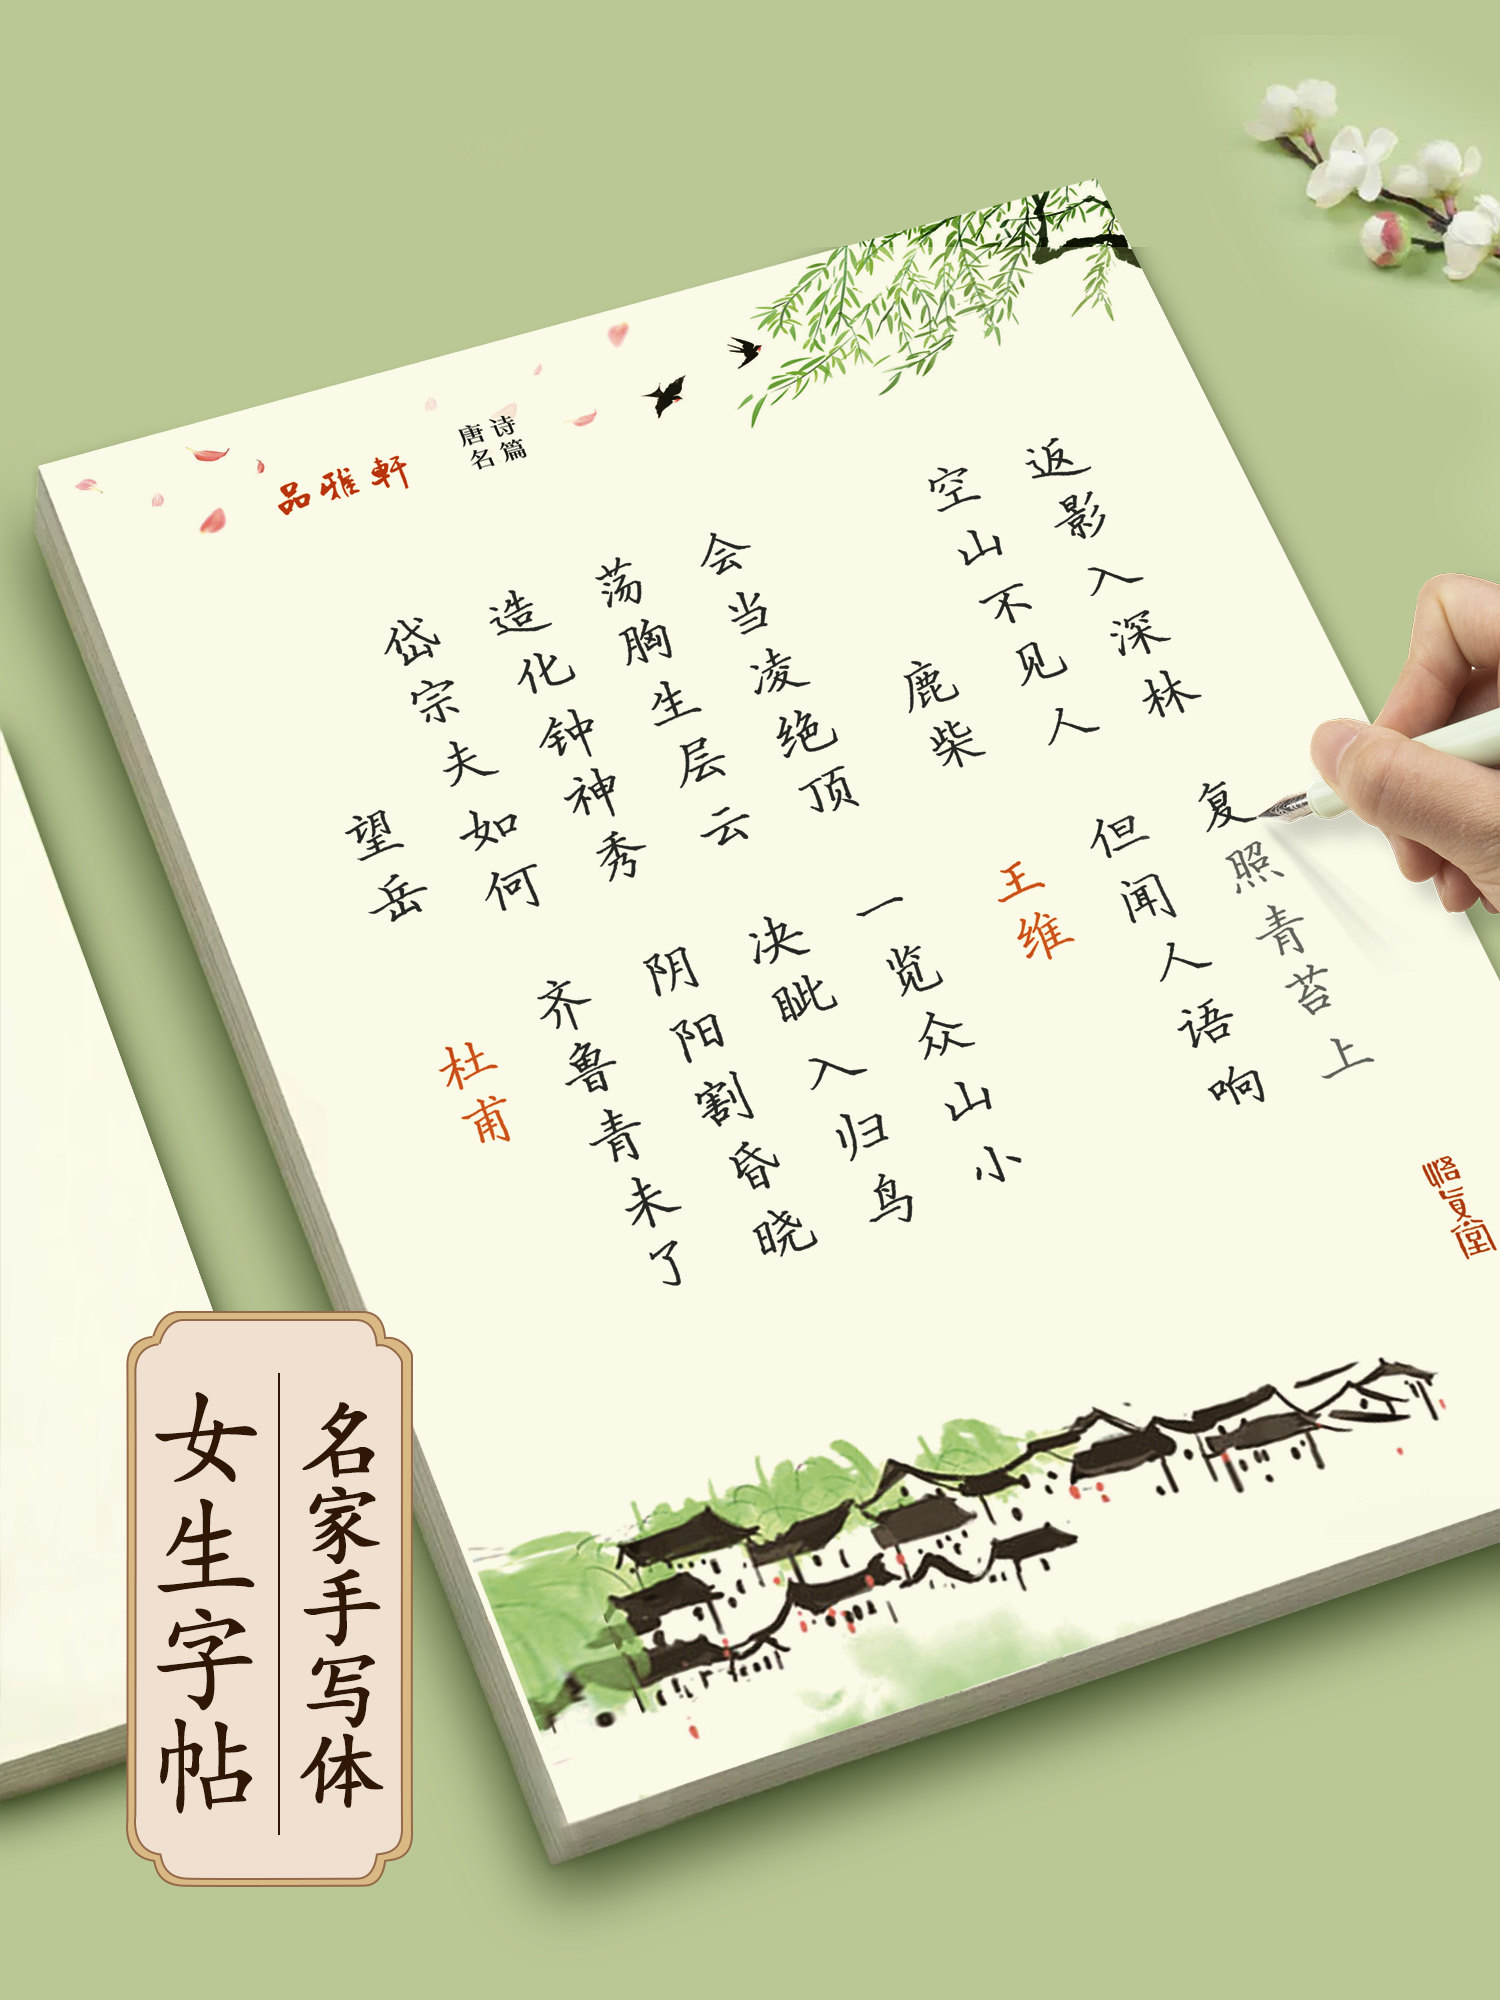 品雅軒
唐诗
名篇
望岳
杜甫
岱宗夫如何
齐鲁青未了
造化钟神秀
阴阳割昏晓
荡胸生层云
决眦入归鸟
会当凌绝顶
一览众山小
鹿柴
王维
空山不见人
但闻人语响
返影入深林
复照青苔上
名家手写体
女生字帖